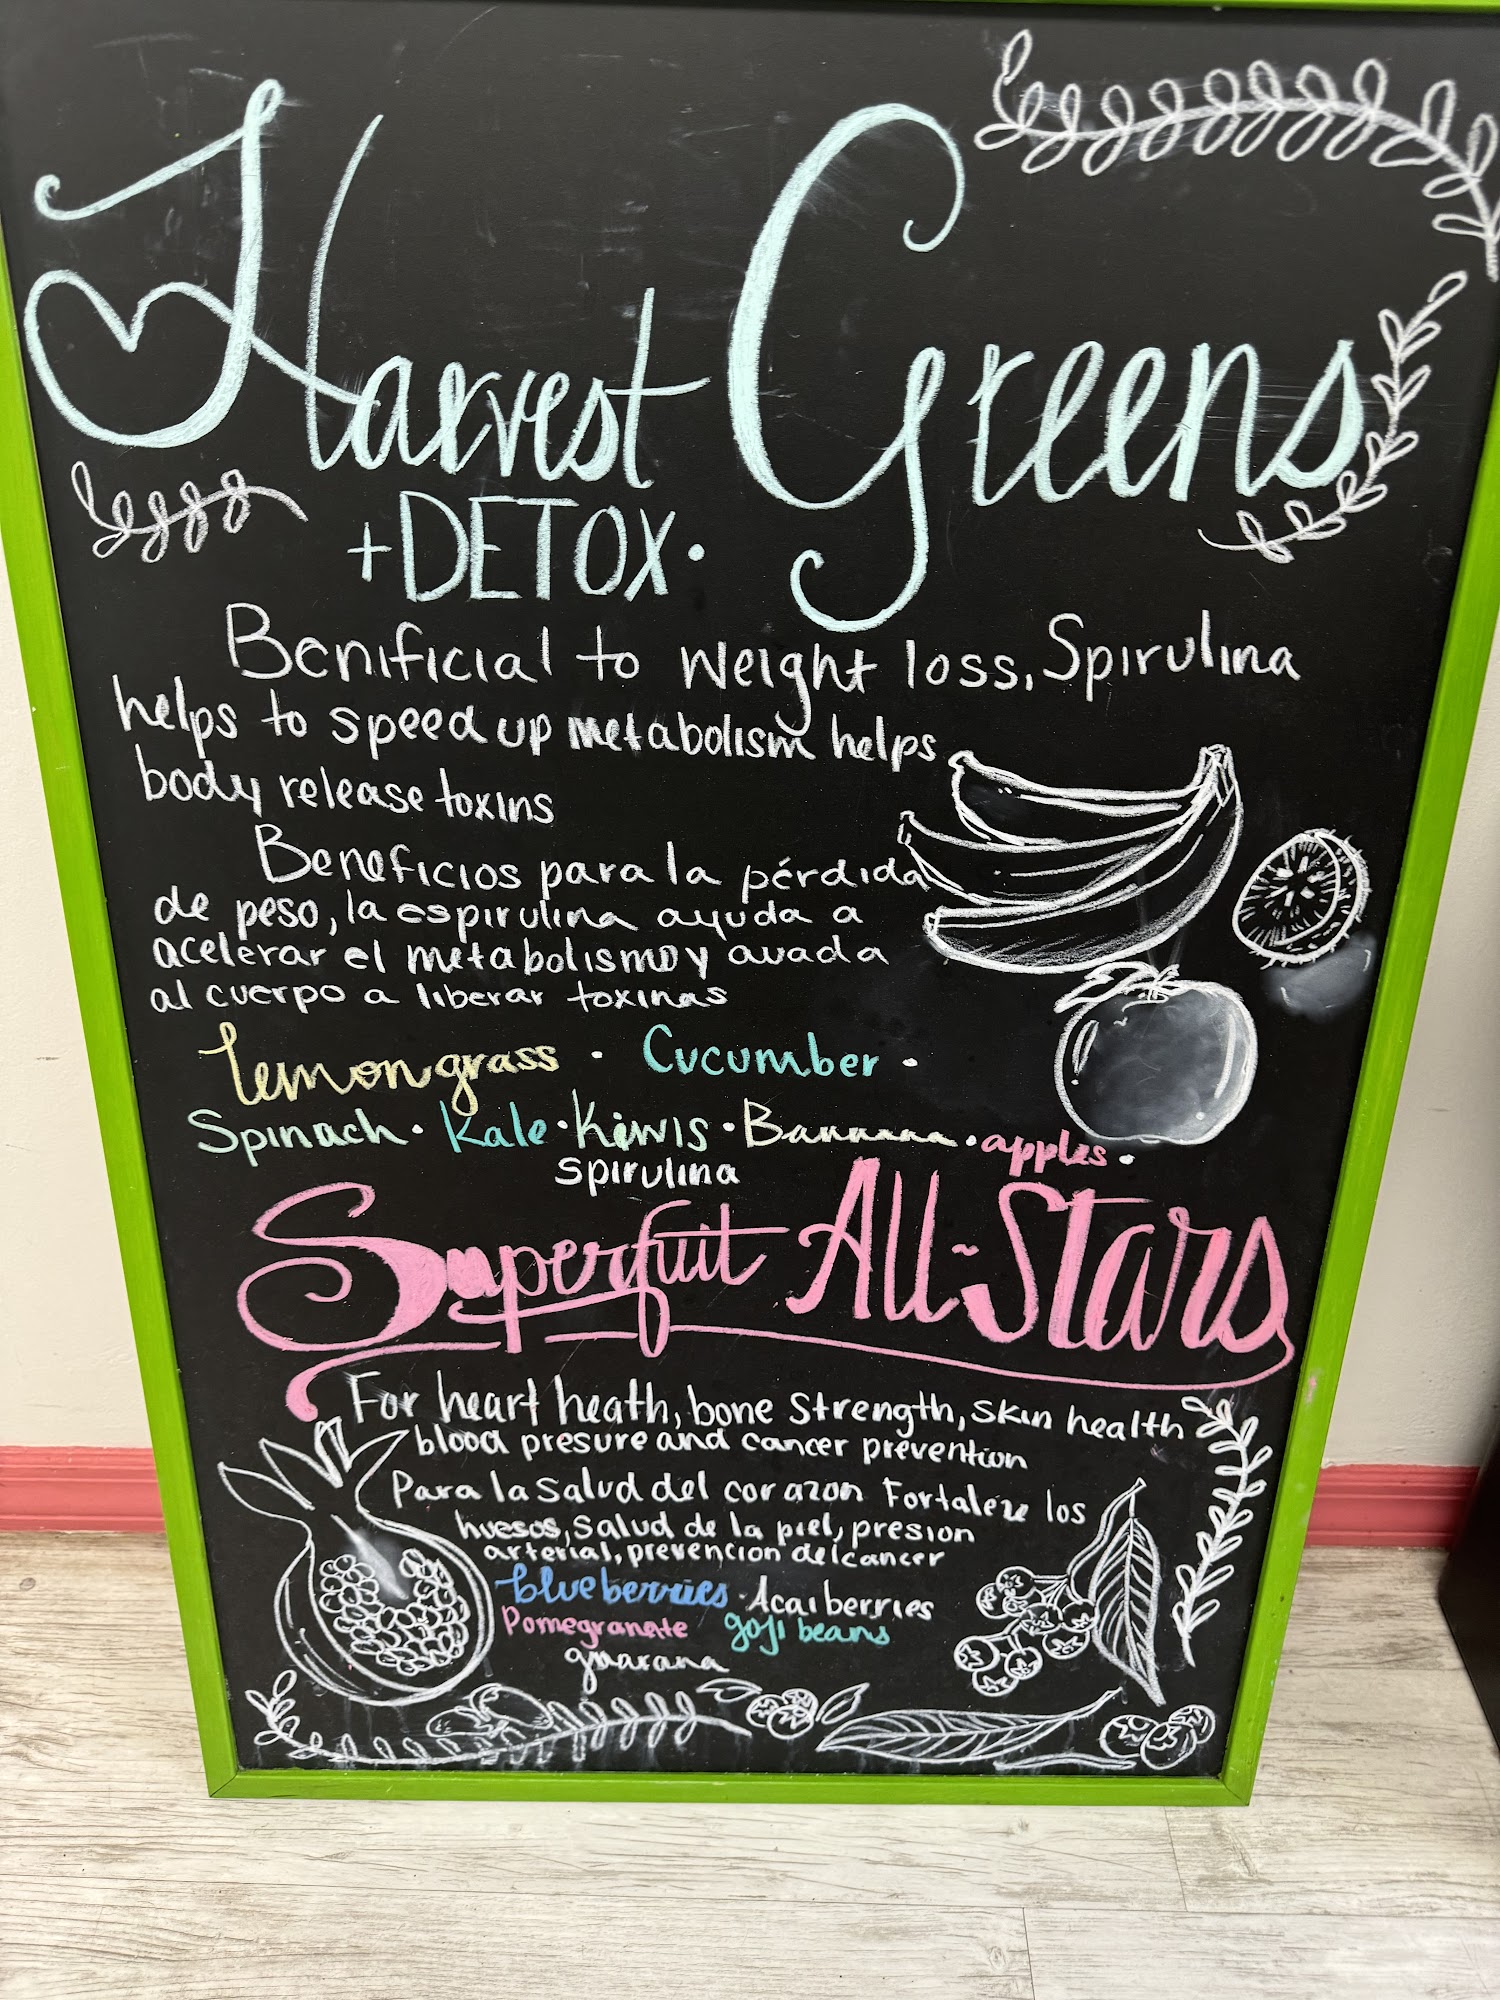 Harvest Greens
+DETOX.
Benificial to weight loss, Spirulina
helps to speed up metabolism helps
body release toxins
Beneficios para la pérdida
de peso, la espirulina ayuda a
acelerar el metabolismo y auada
al cuerpo a liberar toxinas
lemongrass · Cucumber ·
Spinach · Kale · Kiwis · Banana · apples ·
spirulina
Superfuit All-Stars
For heart heath, bone strength, skin health
blood presure and cancer prevention
Para la salud del corazon Fortaleze los
huesos, salud de la piel, presion
arterial, prevencion del cancer
blueberries · Acai berries
Pomegranate goji beans
guarana